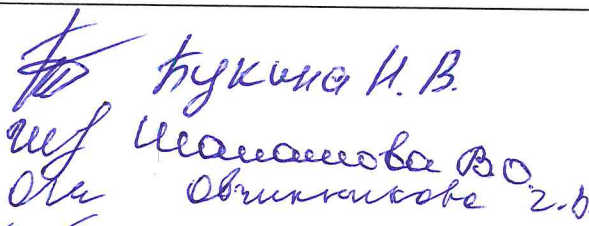 Букина Н. В.
Шапашова В О.
Овчинникова г. В.